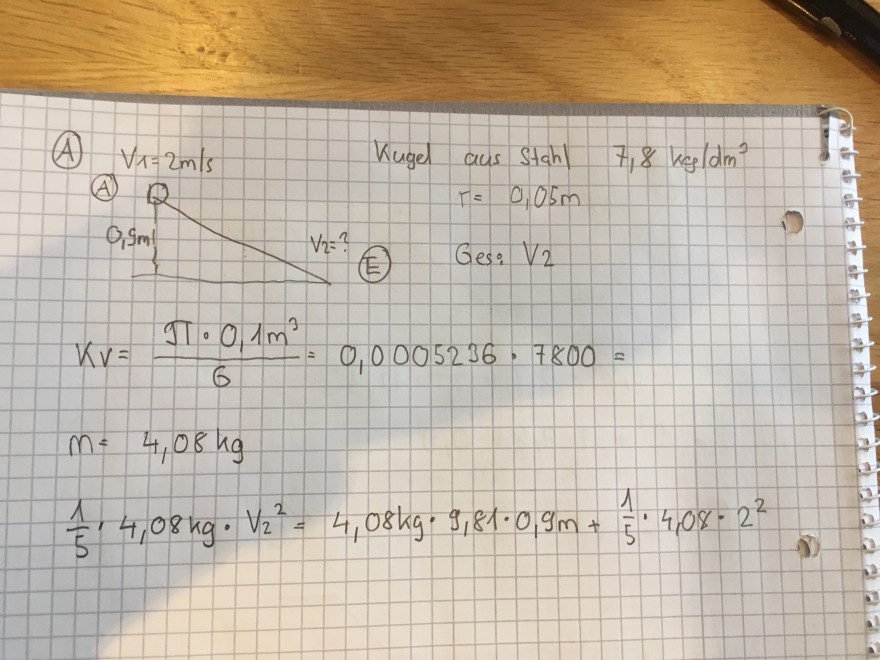 Ⓐ V1=2m/s Kugel aus Stahl 7,8 kg/dm³
Ⓐ r= 0,05m
0,9m V2=? Ⓔ Ges: V2
KV= π·0,1m³/6 = 0,0005236 · 7800 =
m= 4,08kg
1/5 · 4,08kg · V2² = 4,08kg · 9,81 · 0,9m + 1/5 · 4,08 · 2²